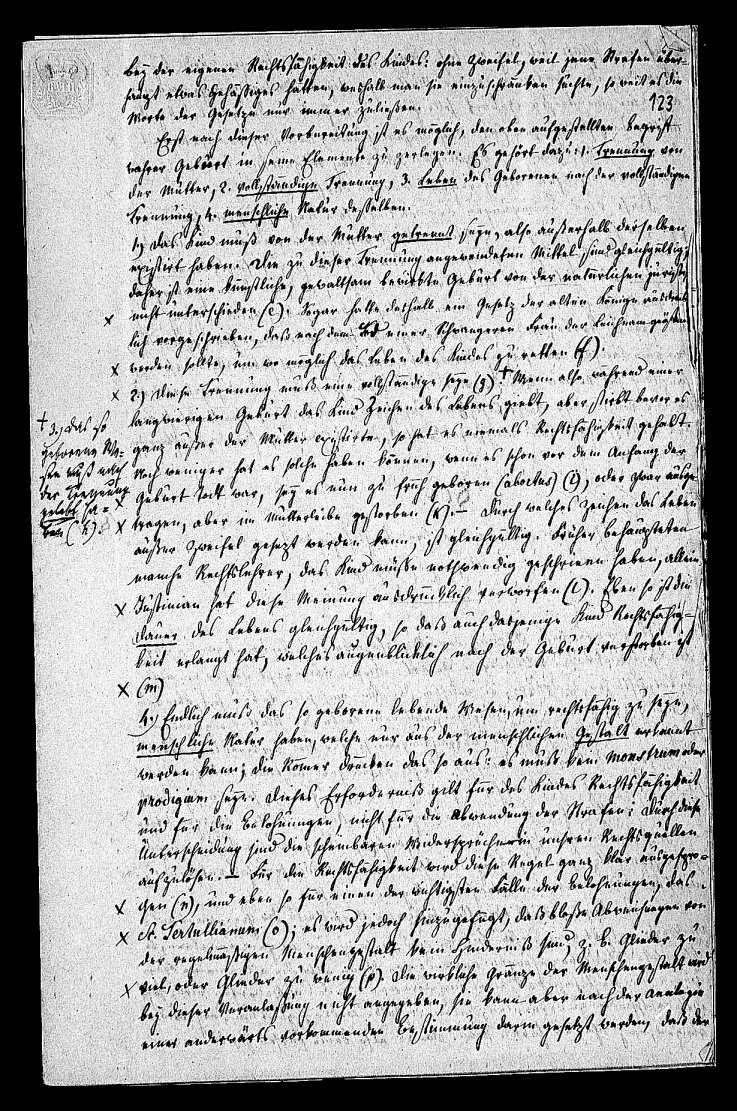 bey der eigenen Rechtsfähigkeit des Kindes: ohne Zweifel, weil jene Strafen über-
haupt etwas Gehässiges hatten, weshalb man sie einzuschränken suchte, so weit es die
Worte der Gesetze nur immer zuließen.
123
Erst nach dieser Vorbereitung ist es möglich, den oben aufgestellten Begriff
wahrer Geburt in seine Elemente zu zerlegen. Es gehört dazu: 1. Trennung von
der Mutter, 2. vollständige Trennung, 3. Leben des Geborenen nach der vollständigen
Trennung, 4. menschliche Natur desselben.
1.) Das Kind muß von der Mutter getrennt seyn, also außerhalb derselben
existirt haben. Die zu dieser Trennung angewendeten Mittel sind gleichgültig;
daher ist eine künstliche, gewaltsam bewirkte Geburt von der natürlichen juristisch
nicht unterschieden (e). Sogar hatte deshalb ein Gesetz der alten Könige ausdrück-
lich vorgeschrieben, daß nach dem Tod einer schwangeren Frau der Leichnam geöffnet
werden sollte, um wo möglich das Leben des Kindes zu retten (f).
2.) Diese Trennung muß eine vollständige seyn (g). + Wenn also während einer
langwierigen Geburt das Kind Zeichen des Lebens giebt, aber stirbt bevor es
ganz außer der Mutter existirte, so hat es niemals Rechtsfähigkeit gehabt.
Noch weniger hat es solche haben können, wenn es schon vor dem Anfang der
Geburt todt war, sey es nun zu früh geboren (abortus) (i), oder zwar ausge-
tragen, aber im Mutterleibe gestorben (k). – Durch welches Zeichen das Leben
außer Zweifel gesetzt werden kann, ist gleichgültig. Früher behaupteten
manche Rechtslehrer, das Kind müßte nothwendig geschrieen haben, allein
Justinian hat diese Meinung ausdrücklich verworfen (l). Eben so ist die
Dauer des Lebens gleichgültig, so daß auch dasjenige Kind Rechtsfähig-
keit erlangt hat, welches augenblicklich nach der Geburt verstorben ist
(m)
+ 3.) Das so
geborene We-
sen muß nach
der Trennung
gelebt ha-
ben (h).
4.) Endlich muß das so geborene lebende Wesen, um rechtsfähig zu seyn,
menschliche Natur haben, welche nur aus der menschlichen Gestalt erkannt
werden kann; die Römer drücken das so aus: es muß kein monstrum oder
prodigium seyn. Dieses Erforderniß gilt für des Kindes Rechtsfähigkeit
und für die Belohnungen, nicht für die Abwendung der Strafen; durch diese
Unterscheidung sind die scheinbaren Widersprüche in unsren Rechtsquellen
aufzulösen. – Für die Rechtsfähigkeit wird diese Regel ganz klar ausgespro-
chen (n), und eben so für einen der wichtigsten Fälle der Belohnungen, das
Sc. Tertullianum (o); es wird jedoch hinzugefügt, daß bloße Abweichungen von
der regelmäßigen Menschengestalt kein Hinderniß sind, z. B. Glieder zu
viel, oder Glieder zu wenig (p). Die wirkliche Gränze der Menschengestalt wird
bey dieser Veranlassung nicht angegeben, sie kann aber nach der Analogie
einer anderwärts vorkommenden Bestimmung darin gesetzt werden, daß der